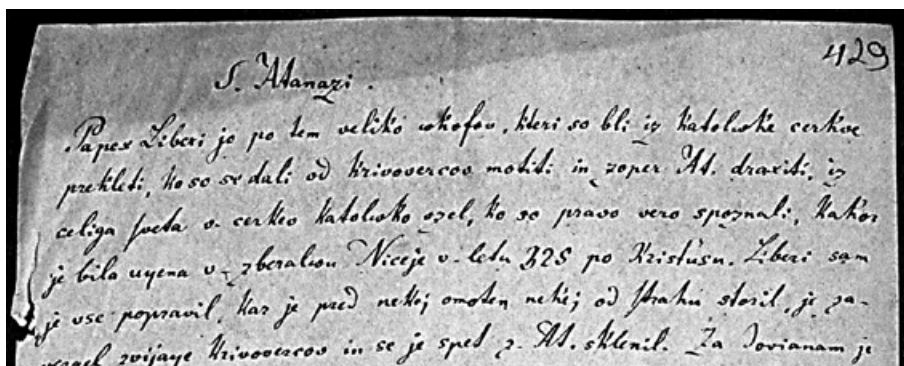 429
S. Atanazi.
Papex Liberi je po tem veliko ukofov, kteri so bli iz katoluke cerkve
prekleti, ko so se dali od krivovercov motiti in zoper At. draxiti, iz
celiga sveta v cerkev katoluko vzel, ko so pravo vero spoznali, kakor
je bila v zberaliuu Niceje v letu 325 po Kristusu. Liberi sam
je vse popravil, kar je pred nekej omoten nekej od strahu storil, je za-
krivovercov in se je spet z At. sklenil. Za Jovianam je